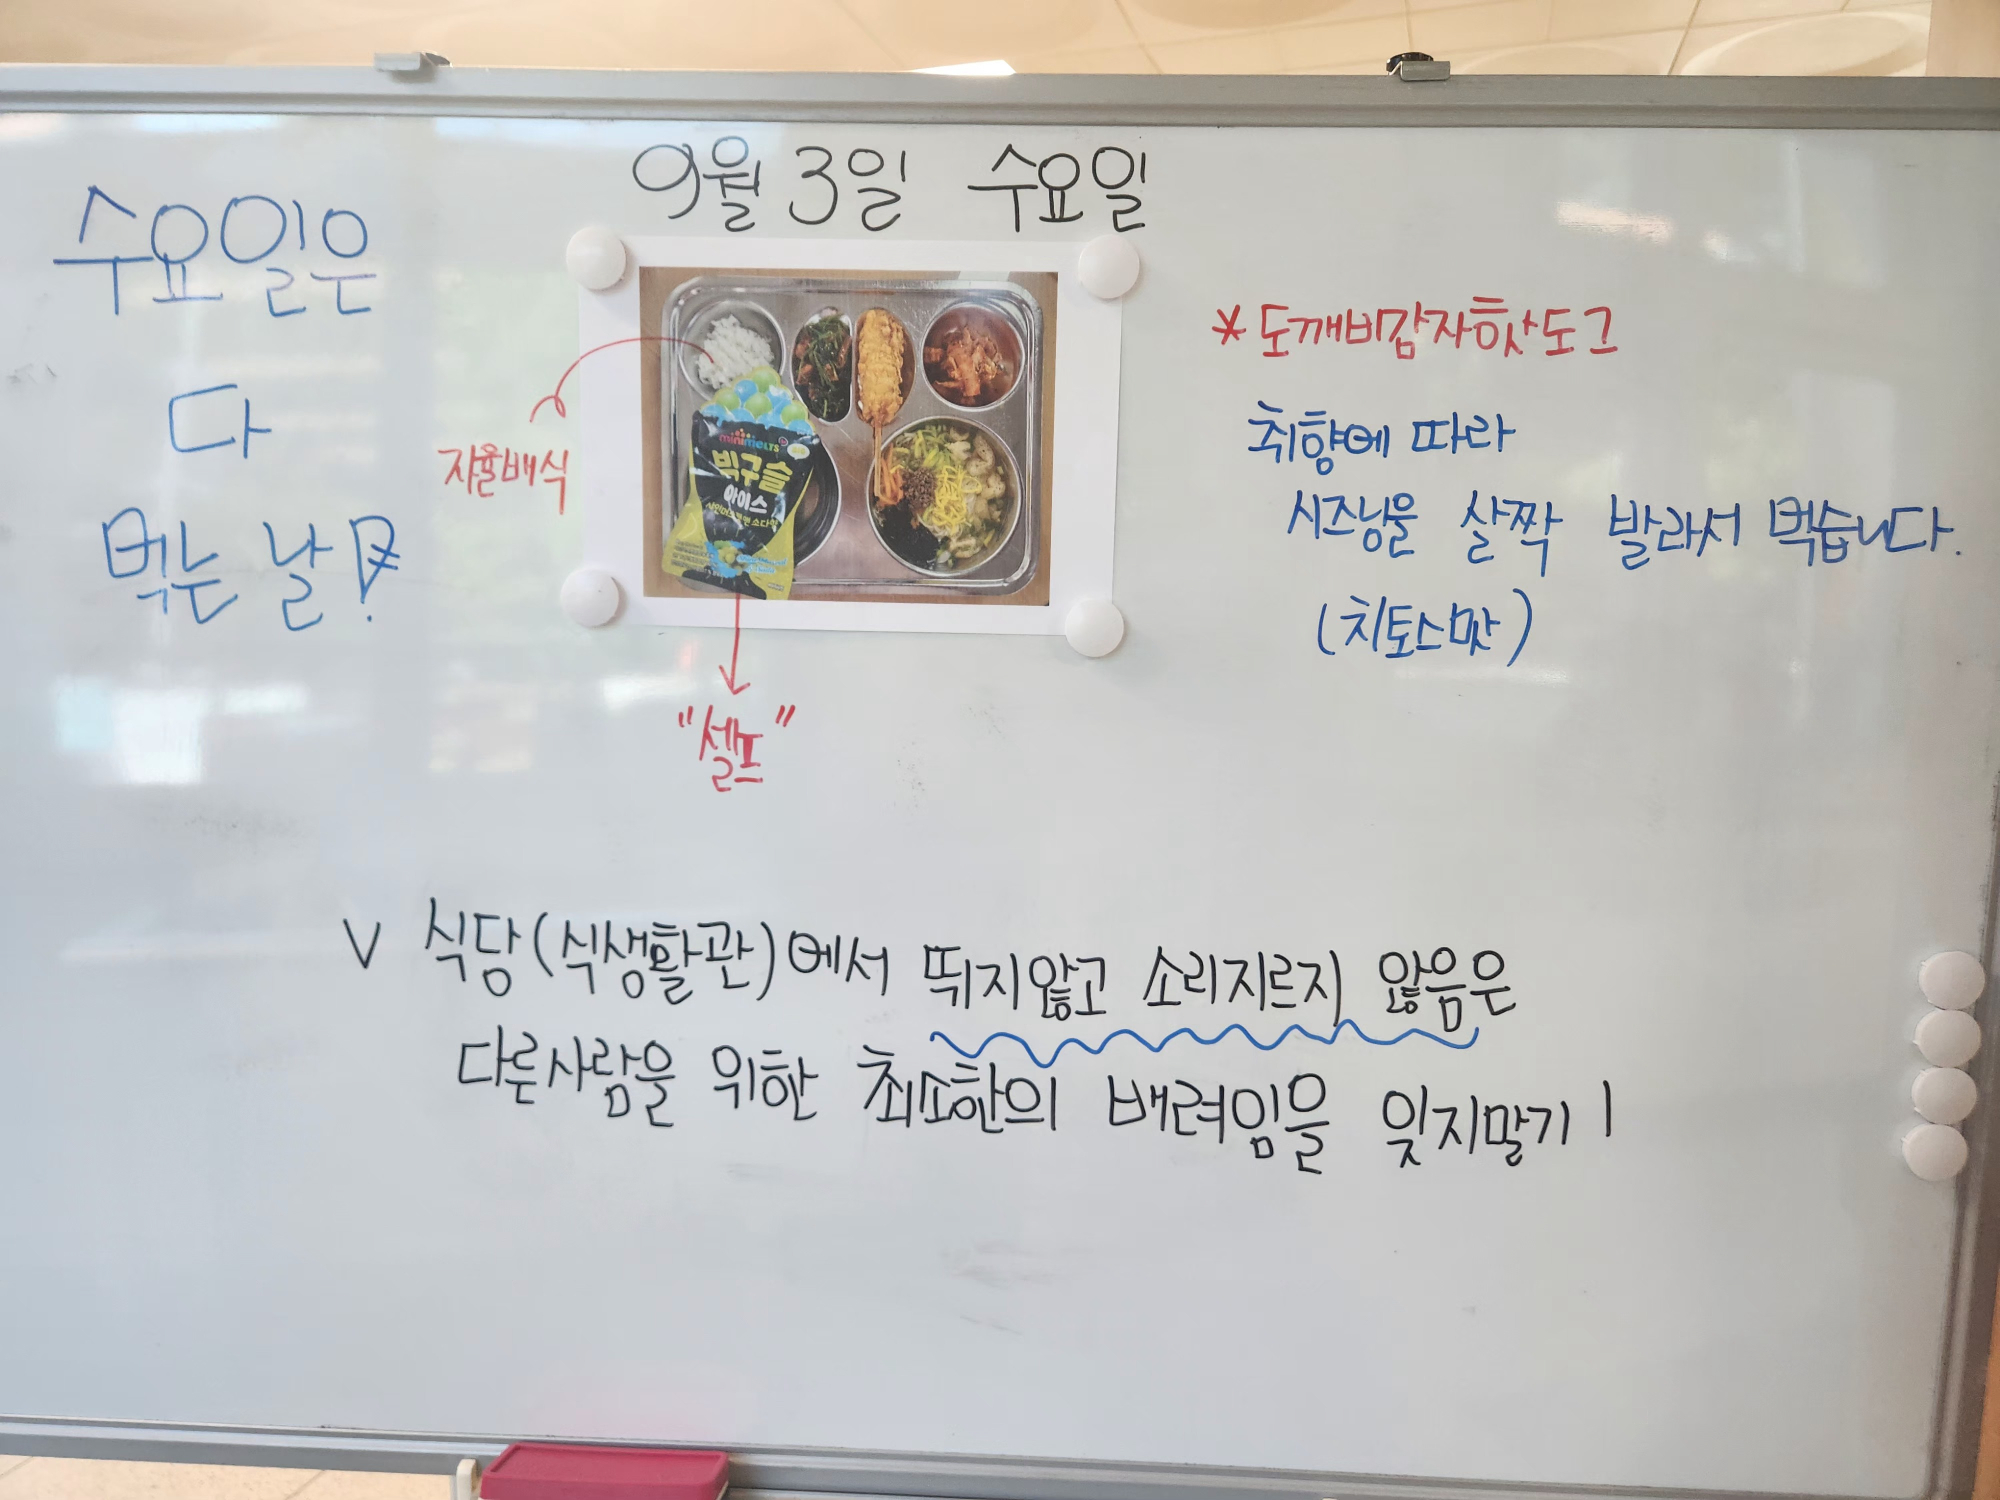 9월 3일 수요일
수요일은
다
먹는 날!
자율배식
minimelts
빅구슬
아이스
"셀프"
*도깨비감자핫도그
취향에 따라
시즈닝을 살짝 발라서 먹습니다.
(치토스맛)
V 식당(식생활관)에서 뛰지않고 소리지르지 않음은
다른사람을 위한 최소한의 배려임을 잊지말기!